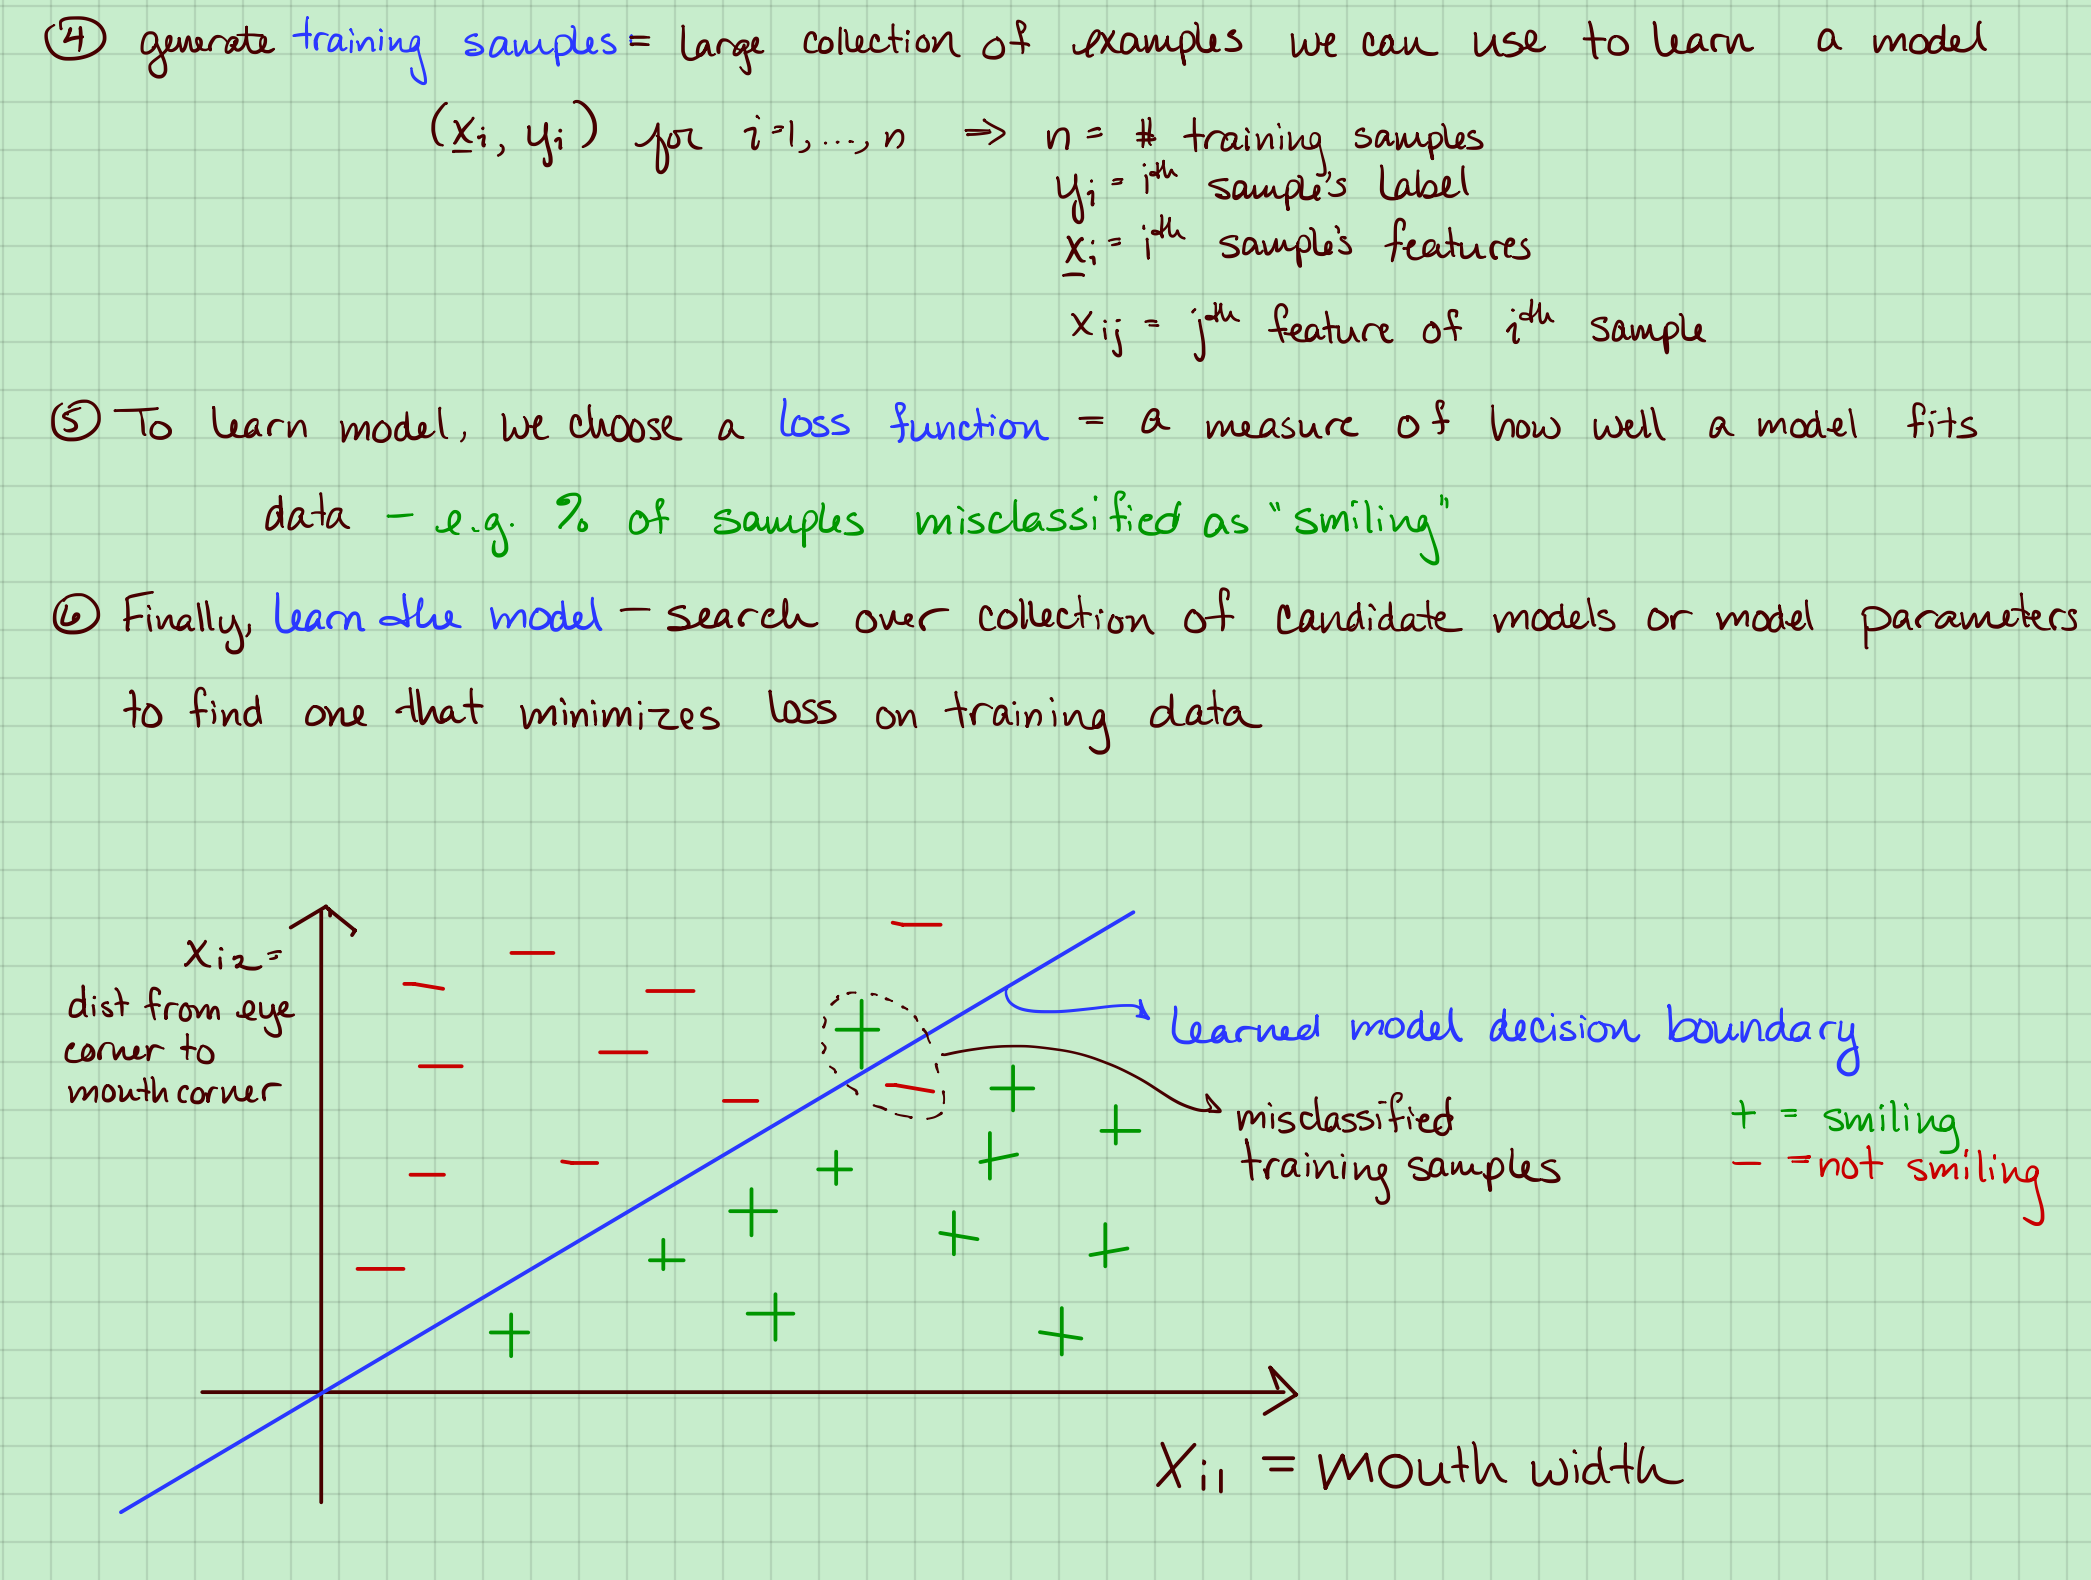 ④ generate training samples = large collection of examples we can use to learn a model
(x̲ᵢ, yᵢ) for i=1,...,n ⇒ n = # training samples
yᵢ = iᵗʰ sample's label
x̲ᵢ = iᵗʰ sample's features
xᵢⱼ = jᵗʰ feature of iᵗʰ sample
⑤ To learn model, we choose a loss function = a measure of how well a model fits
data – e.g. % of samples misclassified as "smiling"
⑥ Finally, learn the model – search over collection of candidate models or model parameters
to find one that minimizes loss on training data
xᵢ₂ =
dist from eye
corner to
mouth corner
learned model decision boundary
misclassified
training samples
+ = smiling
– = not smiling
xᵢ₁ = mouth width